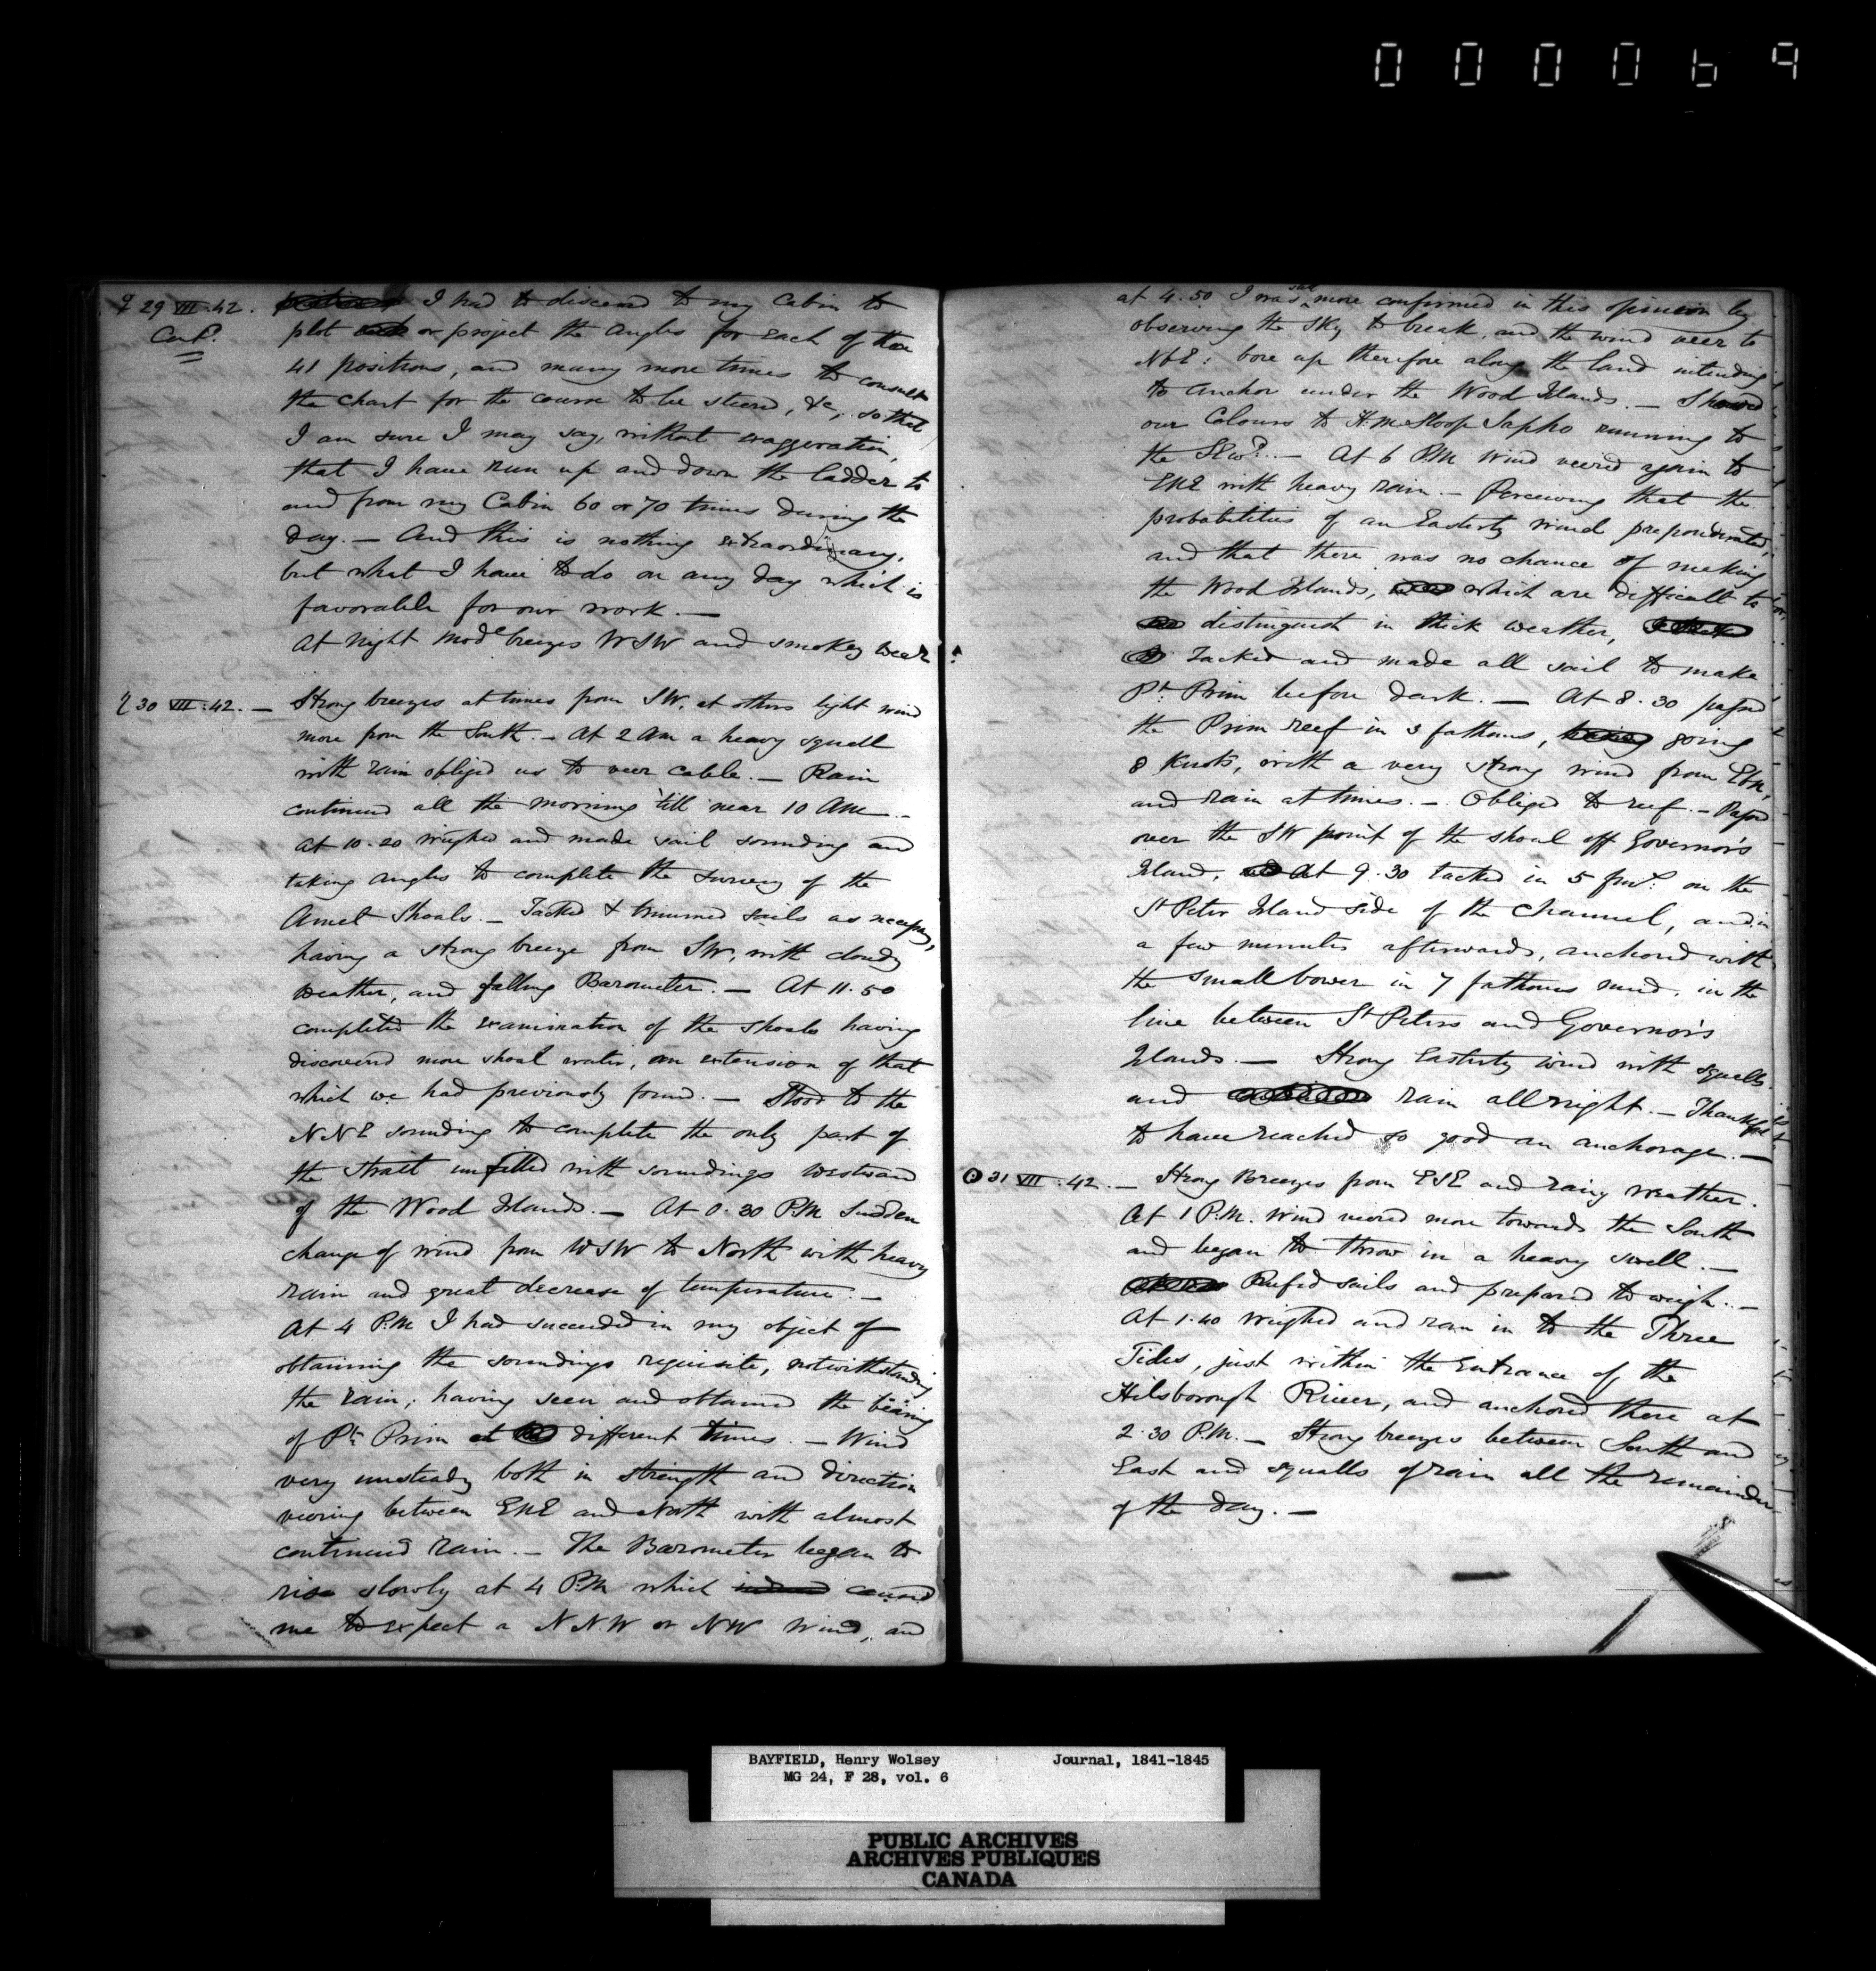 000069
♀ 29 VII. 42. I had to descend to my Cabin to
Contd. plot or project the Angles for each of these
41 positions, and many more times to consult
the chart for the course to be steered, &c, so that
I am sure I may say, without exaggeration,
that I have run up and down the ladder to
and from my Cabin 60 or 70 times during the
day. — And this is nothing extraordinary,
but what I have to do on any day which is
favorable for our work. —
At Night Mode breezes WSW and smokey wear
♄ 30 VII. 42. — Strong breezes at times from SW, at others light wind
more from the South. — At 2 AM a heavy squall
with rain obliged us to veer cable. — Rain
continued all the morning 'till near 10 AM. —
At 10.20 weighed and made sail sounding and
taking angles to complete the survey of the
Amet Shoals. — Tacked & trimmed sails as necessy,
having a strong breeze from SW, with cloudy
weather, and falling Barometer. — At 11.50
completed the examination of the shoals having
discovered more shoal water, an extension of that
which we had previously found. — Stood to the
NNE sounding to complete the only part of
the Strait unfilled with soundings westward
of the Wood Islands. — At 0.30 P.M. sudden
change of wind from WSW to North with heavy
rain and great decrease of temperature. —
At 4 P.M I had succeeded in my object of
obtaining the soundings requisite, notwithstanding
the rain; having seen and obtained the bearing
of Pt. Prim at different times. — Wind
very unsteady both in strength and direction
veering between ENE and North with almost
continued rain. — The Barometer began to
rise slowly at 4 P.M which caused
me to expect a NNW or NW Wind, and
at 4.50 I was still more confirmed in this opinion by
observing the sky to break, and the wind veer to
NbE: bore up therefore along the land intending
to anchor under the Wood Islands. — Showed
our Colours to H.M. Sloop Sapho running to
the SEwd. — At 6 P.M Wind veered again to
ENE with heavy rain. — Perceiving that the
probabilities of an Easterly wind preponderated,
and that there was no chance of making
the Wood Islands, which are difficult to
distinguish in thick weather,
Tacked and made all sail to make
Pt. Prim before dark. — At 8.30 passed
the Prim reef in 3 fathoms, going
8 knots, with a very strong wind from EbN,
and rain at times. — Obliged to reef. — Passed
over the SW point of the shoal off Governor's
Island. At 9.30 tacked in 5 fms. on the
St Peter Island side of the channel, and in
a few minutes afterwards, anchored with
the small bower in 7 fathoms mud, in the
line between St Peters and Governor's
Islands. — Strong Easterly wind with squalls
and rain all night. — Thankful
to have reached so good an anchorage. —
☉ 31 VII. 42. — Strong Breezes from ESE and rainy weather.
At 1 P.M. Wind veered more towards the South
and began to throw in a heavy swell. —
Reefed sails and prepared to weigh. —
At 1.40 weighed and ran in to the Three
Tides, just within the Entrance of the
Hilsborough River, and anchored there at
2.30 P.M. — Strong breezes between South and
East and squalls of rain all the remainder
of the day. —
BAYFIELD, Henry Wolsey Journal, 1841-1845
MG 24, F 28, vol. 6
PUBLIC ARCHIVES
ARCHIVES PUBLIQUES
CANADA